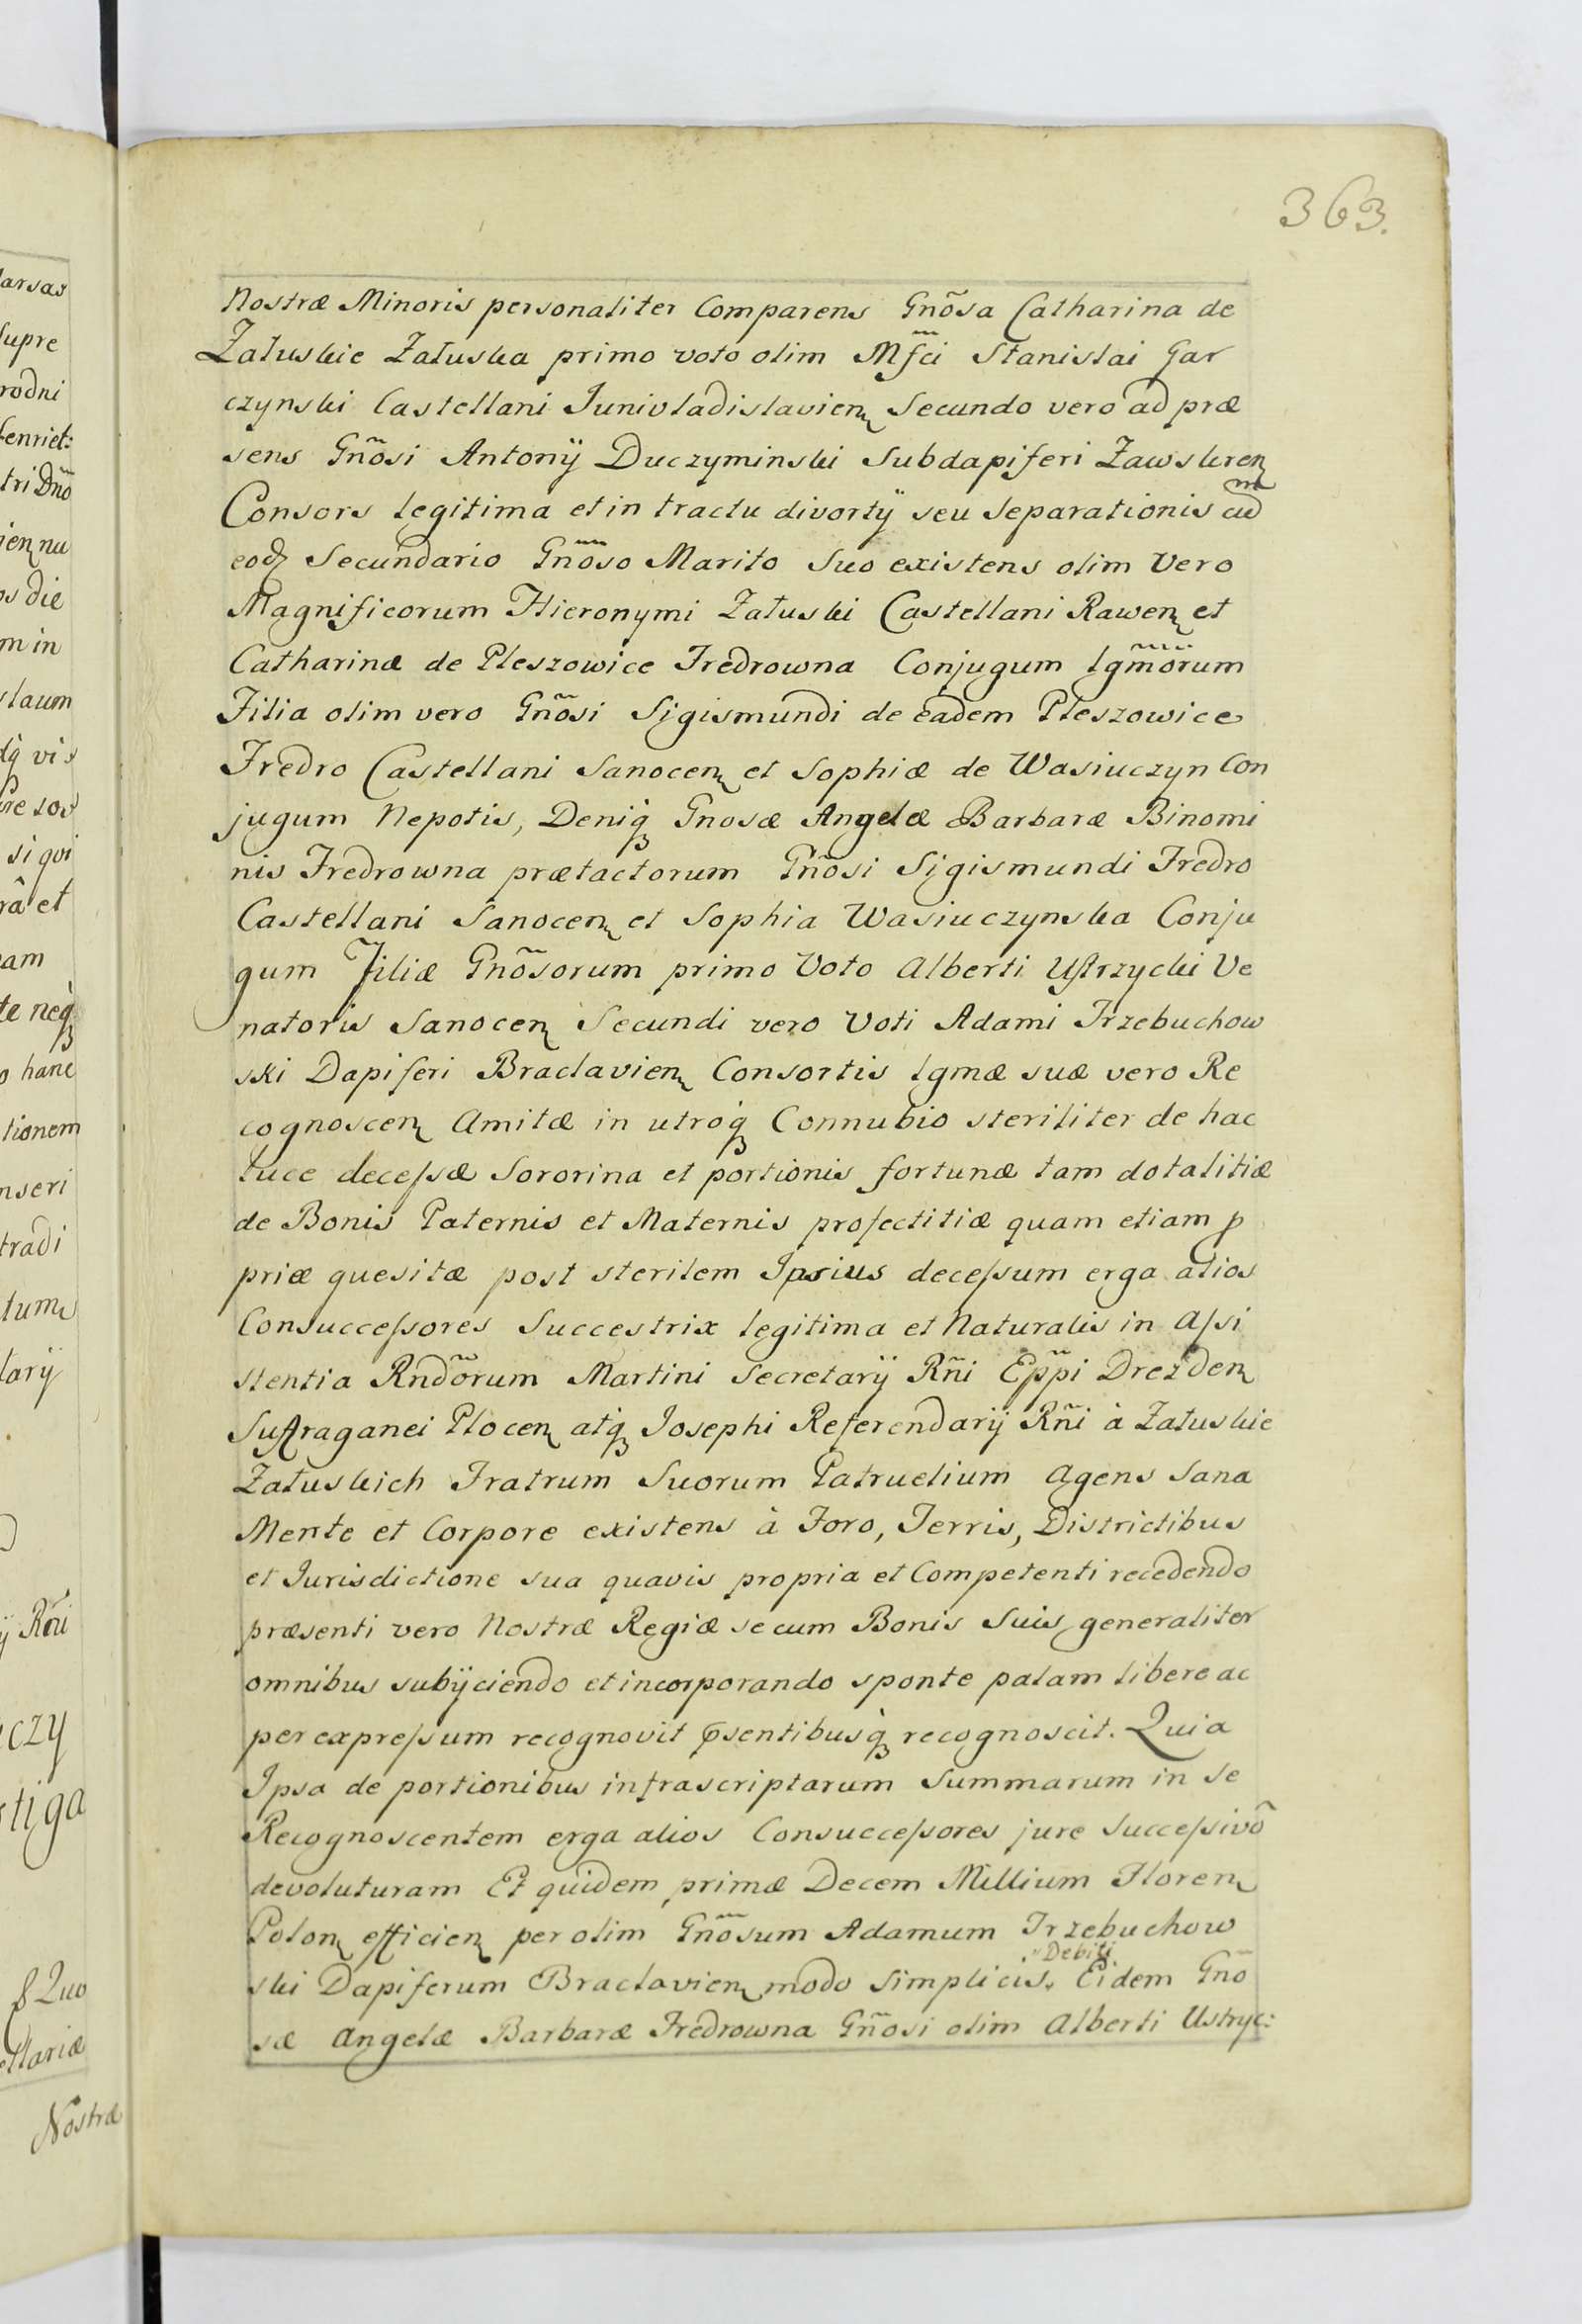 363.
Nostræ Minoris personaliter Comparens Gñosa Catharina de
Załuskie Załuska primo voto olim Mf̃ci Stanislai Gar
czynski Castellani Junivladislavien Secundo vero ad præ
sens Gñosi Antonÿ Duczyminski Subdapiferi Zawskren
Consors legitima et in tractu divortÿ seu Separationis cũ
eod Secundario Gñoso Marito Suo existens olim Vero
Magnificorum Hieronymi Załuski Castellani Rawen et
Catharinæ de Pleszowice Fredrowna Conjugum lgm̃orum
Filia olim vero Gñosi Sigismundi de eadem Pleszowice
Fredro Castellani Sanocen et Sophiæ de Wasiuczyn Con
jugum Nepotis, Deniq Gnosæ Angelæ Barbaræ Binomi
nis Fredrowna prætactorum Gñosi Sigismundi Fredro
Castellani Sanocen et Sophia Wasiuczynska Conju
gum Filiæ Gñosorum primo Voto Alberti Ustrzycki Ve
natoris Sanocen Secundi vero Voti Adami Trzebuchow
ski Dapiferi Braclavien Consortis lgmæ suæ vero Re
cognoscen Amitæ in utroq Connubio steriliter de hac
luce decessæ Sororina et portionis fortunæ tam dotalitiæ
de Bonis Paternis et Maternis profectitiæ quam etiam p
priæ quesitæ post sterilem Ipsius decessum erga alios
Consuccessores Succestrix legitima et Naturalis in Assi
stentia Rndõrum Martini Secretarÿ Rñi Epp̃i Drezden
Suffraganei Plocen atq Josephi Referendarÿ Rñi à Załuskie
Załuskich Fratrum Suorum Patruelium Agens Sana
Mente et Corpore existens à Foro, Terris, Districtibus
et Jurisdictione sua quavis propria et Competenti recedendo
præsenti vero Nostræ Regiæ se cum Bonis Suis generaliter
omnibus subÿciendo et incorporando sponte palam libere ac
per expressum recognovit psentibusq recognoscit. Quia
Ipsa de portionibus infrascriptarum Summarum in Se
Recognoscentem erga alios Consuccessores jure Successivo
devoluturam Et quidem primæ Decem Millium Floren
Polon efficien per olim Gñosum Adamum Trzebuchow
Debiti
ski Dapiferum Braclavien modo Simplicis Eidem Gño
sæ Angelæ Barbaræ Fredrowna Gñosi olim Alberti Ustryc: